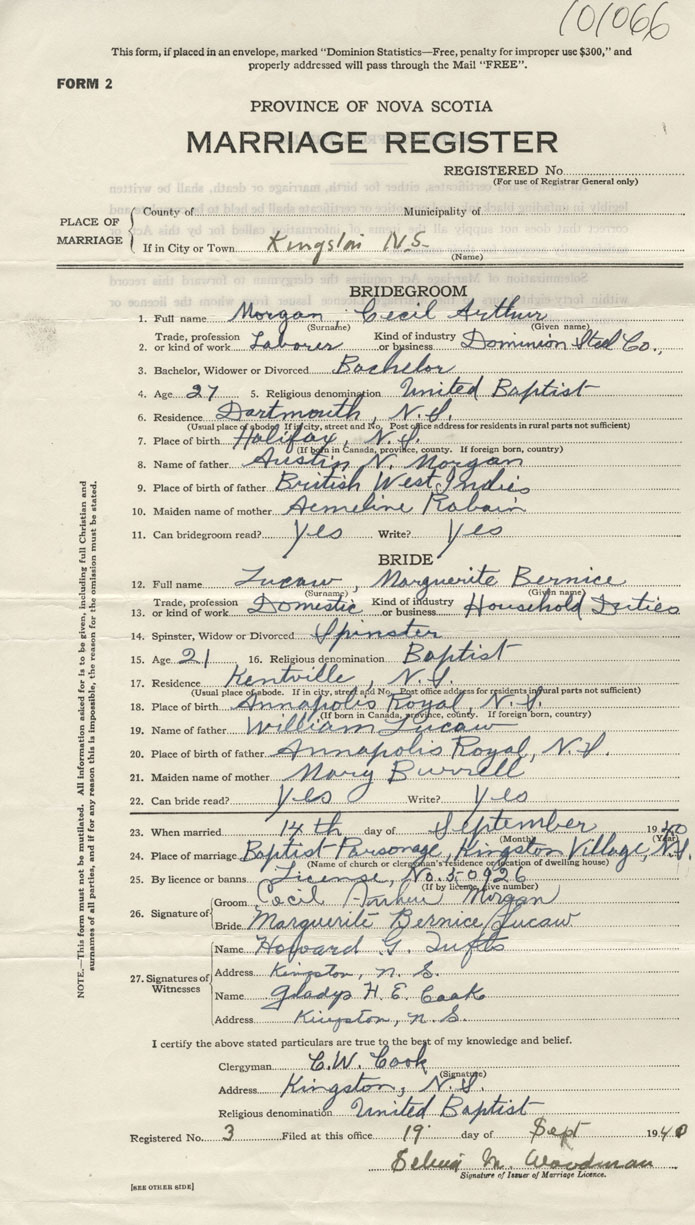 101066
This form, if placed in an envelope, marked "Dominion Statistics—Free, penalty for improper use $300," and
properly addressed will pass through the Mail "FREE".
FORM 2
PROVINCE OF NOVA SCOTIA
MARRIAGE REGISTER
REGISTERED No.
(For use of Registrar General only)
PLACE OF MARRIAGE
County of Municipality of
If in City or Town Kingston N.S.
(Name)
BRIDEGROOM
1. Full name Morgan, Cecil Arthur
(Surname) (Given name)
2. Trade, profession or kind of work Laborer Kind of industry or business Dominion Steel Co.,
3. Bachelor, Widower or Divorced Bachelor
4. Age 27 5. Religious denomination United Baptist
6. Residence Dartmouth, N.S.
(Usual place of abode. If in city, street and No. Post office address for residents in rural parts not sufficient)
7. Place of birth Halifax, N.S.
(If born in Canada, province, county. If foreign born, country)
8. Name of father Austin N. Morgan
9. Place of birth of father British West Indies
10. Maiden name of mother Acmeline Robain
11. Can bridegroom read? yes Write? yes
BRIDE
12. Full name Lucaw, Marguerite Bernice
(Surname) (Given name)
13. Trade, profession or kind of work Domestic Kind of industry or business Household Duties
14. Spinster, Widow or Divorced Spinster
15. Age 21 16. Religious denomination Baptist
17. Residence Kentville, N.S.
(Usual place of abode. If in city, street and No. Post office address for residents in rural parts not sufficient)
18. Place of birth Annapolis Royal, N.S.
(If born in Canada, province, county. If foreign born, country)
19. Name of father William Lucaw
20. Place of birth of father Annapolis Royal, N.S.
21. Maiden name of mother Mary Burrell
22. Can bride read? yes Write? yes
23. When married 14th day of September 1940
(Month) (Year)
24. Place of marriage Baptist Parsonage, Kingston Village, N.S.
(Name of church or clergyman's residence or location of dwelling house)
25. By licence or banns License, No. 5-0926
(If by licence, give number)
26. Signature of
Groom Cecil Arthur Morgan
Bride Marguerite Bernice Lucaw
27. Signatures of Witnesses
Name Howard G. Tufts
Address Kingston, N.S.
Name Gladys H. E. Cook
Address Kingston, N.S.
I certify the above stated particulars are true to the best of my knowledge and belief.
Clergyman C.W. Cook
(Signature)
Address Kingston, N.S.
Religious denomination United Baptist
Registered No. 3 Filed at this office 19 day of Sept 1940
M. Woodman
Signature of Issuer of Marriage Licence.
[SEE OTHER SIDE]
NOTE.—This form must not be mutilated. All information asked for is to be given, including full Christian and
surnames of all parties, and if for any reason this is impossible, the reason for the omission must be stated.